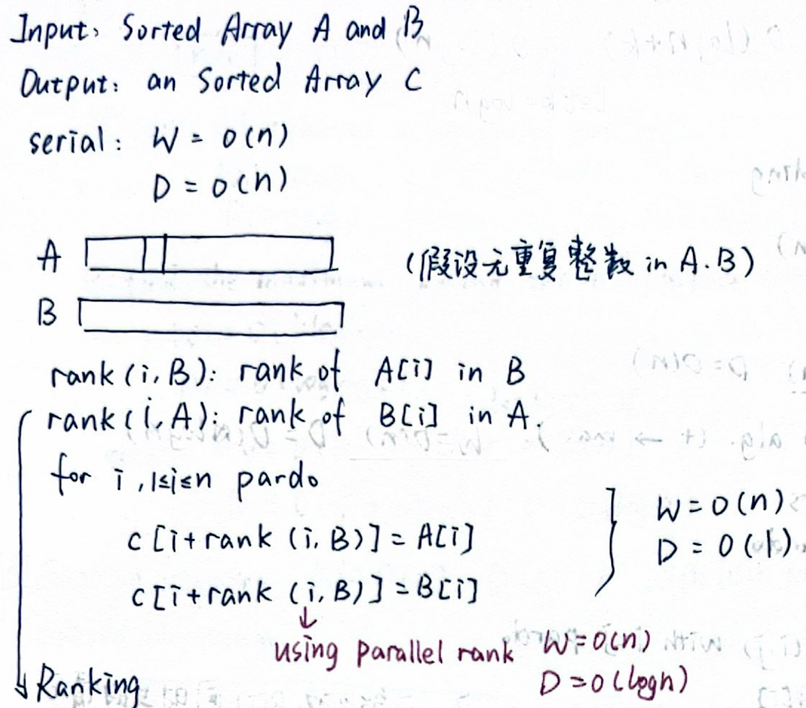 Input: Sorted Array A and B
Output: an Sorted Array C
serial: W = O(n)
D = O(n)
A
(假设无重复整数 in A.B)
B
rank(i,B): rank of A[i] in B
rank(i,A): rank of B[i] in A.
for i, 1≤i≤n pardo
c[i+rank(i,B)] = A[i]
c[i+rank(i,B)] = B[i]
W = O(n)
D = O(1)
using parallel rank W=O(n)
D=O(logn)
Ranking